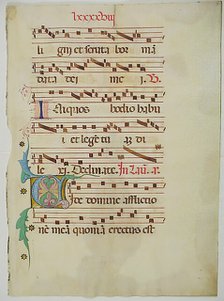 lxxxxviii
li gni et scruta bor mā
data dei me i. V.
Iniquos hodio habu
i et lege tu A di
le xi. Declinate. In Lau. a.
Vide domine afflictio
nē meā quoniā erectus est